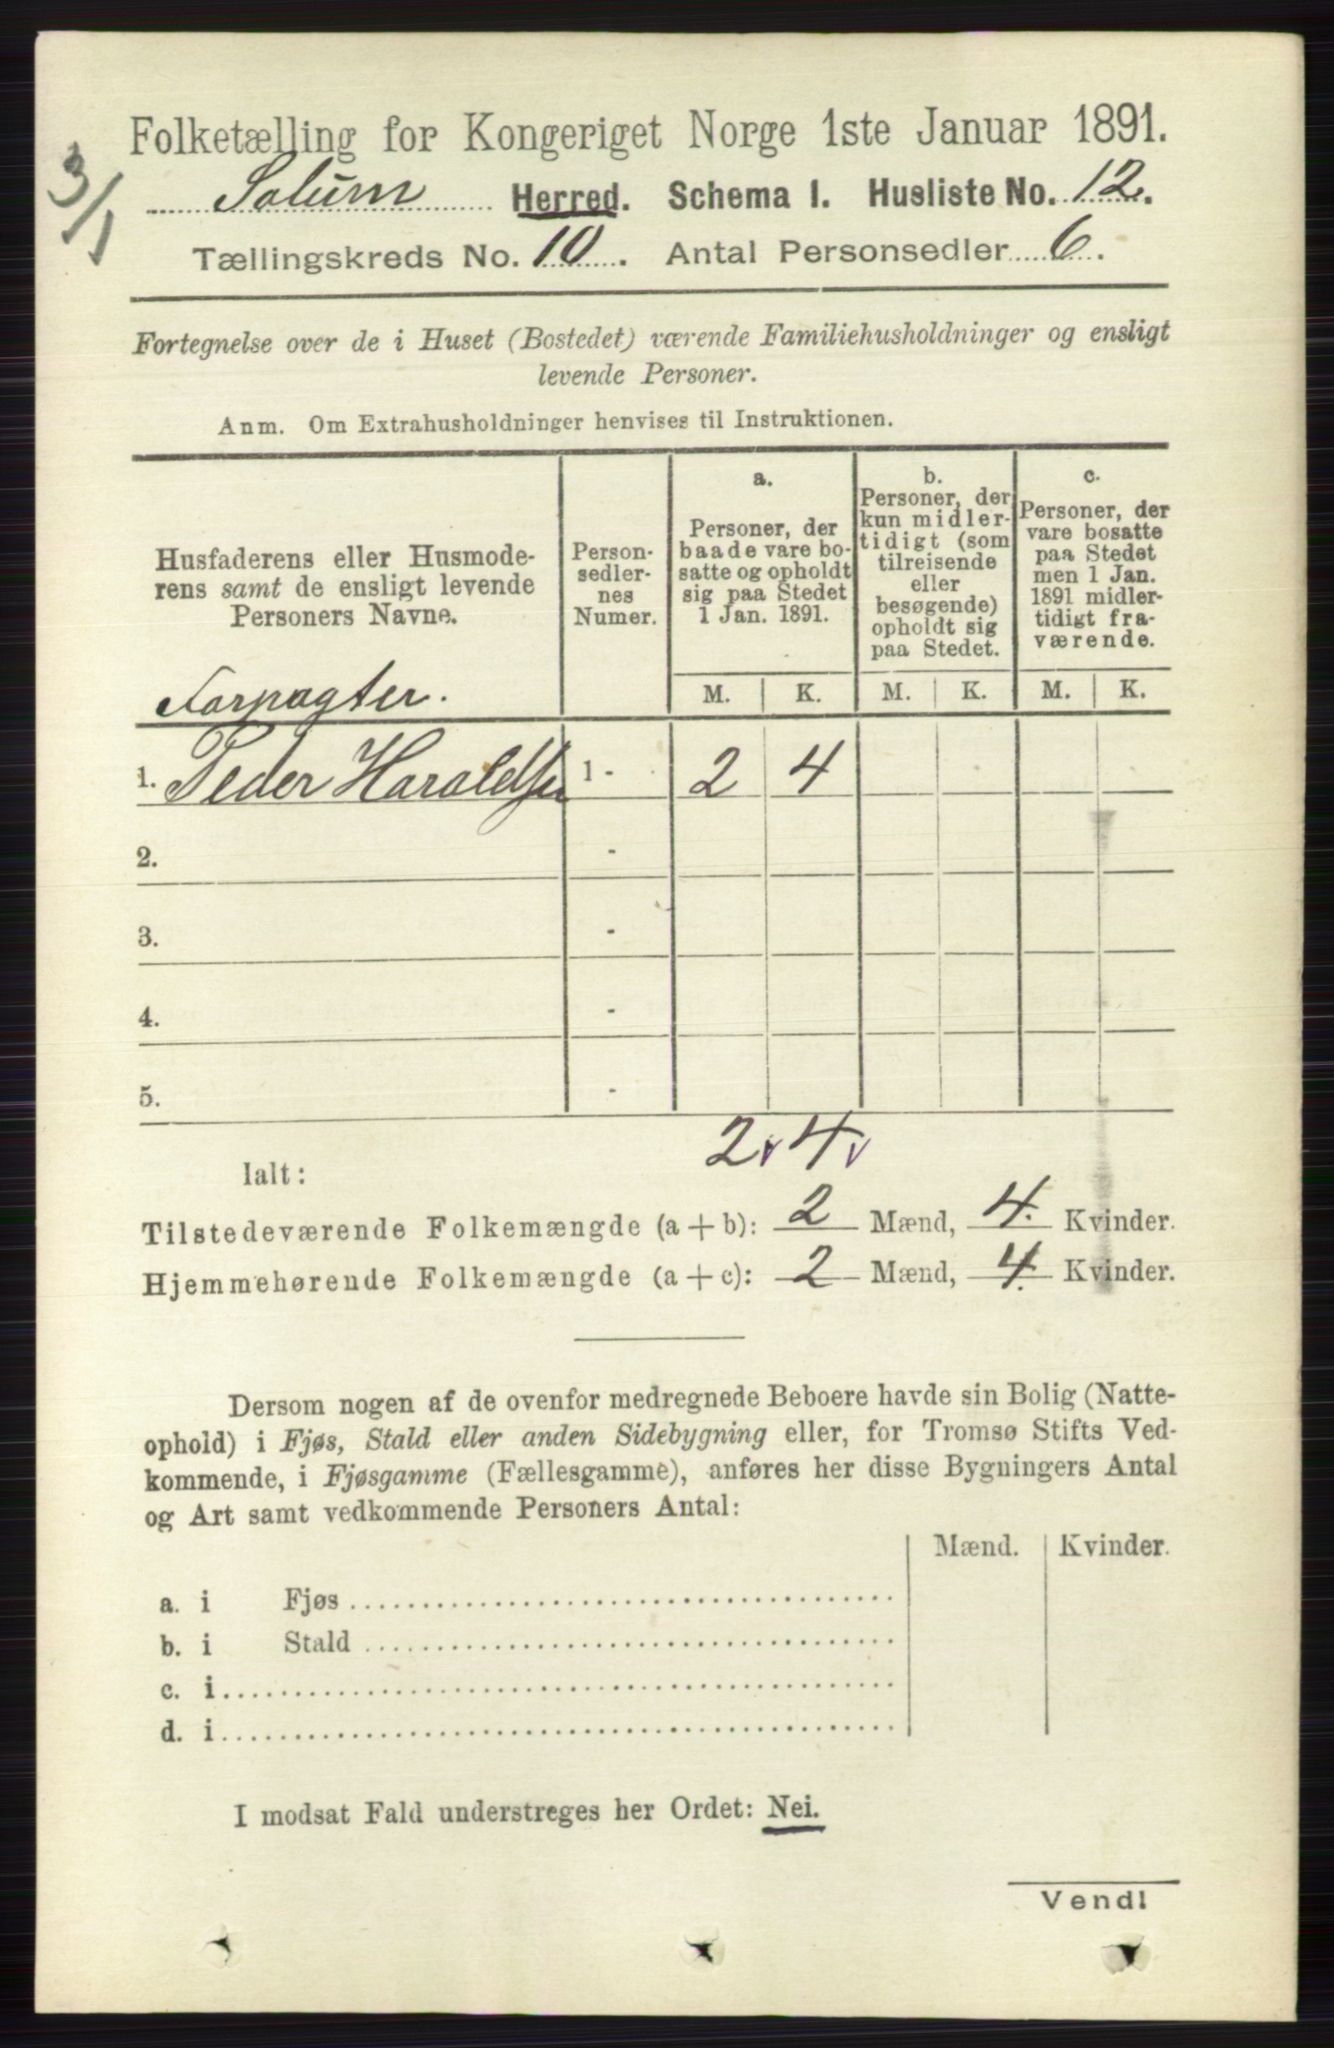 Folketælling for Kongeriget Norge 1ste Januar 1891.
3/1
Solum Herred. Schema I. Husliste No. 12.
Tællingskreds No. 10. Antal Personsedler 6.
Fortegnelse over de i Huset (Bostedet) værende Familiehusholdninger og ensligt
levende Personer.
Anm. Om Extrahusholdninger henvises til Instruktionen.
Husfaderens eller Husmode-
rens samt de ensligt levende
Personers Navne.
Person-
sedler-
nes
Numer.
a.
Personer, der
baade vare bo-
satte og opholdt
sig paa Stedet
1 Jan. 1891.
b.
Personer, der
kun midler-
tidigt (som
tilreisende
eller
besøgende)
opholdt sig
paa Stedet.
c.
Personer, der
vare bosatte
paa Stedet
men 1 Jan.
1891 midler-
tidigt fra-
værende.
Forpagter.
M. K. M. K. M. K.
1. Peder Haraldsen 1 - 2 4
2. -
3. -
4. -
5. -
2 4
Ialt:
Tilstedeværende Folkemængde (a + b): 2 Mænd, 4. Kvinder.
Hjemmehørende Folkemængde (a + c): 2 Mænd, 4. Kvinder.
Dersom nogen af de ovenfor medregnede Beboere havde sin Bolig (Natte-
ophold) i Fjøs, Stald eller anden Sidebygning eller, for Tromsø Stifts Ved-
kommende, i Fjøsgamme (Fællesgamme), anføres her disse Bygningers Antal
og Art samt vedkommende Personers Antal:
Mænd. Kvinder.
a. i Fjøs
b. i Stald
c. i
d. i
I modsat Fald understreges her Ordet: Nei.
Vendl